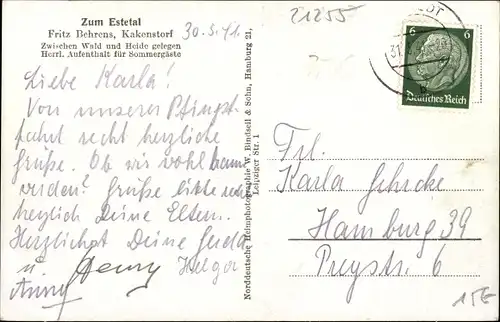 Zum Estetal
Fritz Behrens, Kakenstorf
Zwischen Wald und Heide gelegen
Herrl. Aufenthalt für Sommergäste
30.5.41
21255
Liebe Karla!
Von unserer Pfingst-
fahrt recht herzliche
Grüße. Ob wir wohl braun
werden? Grüße bitte
herzlich Deine Eltern.
Herzlichst Deine Gerda
u. Henny Helga
Anny
Norddeutsche Heimphotographie W. Bindseil & Sohn, Hamburg 21,
Leipziger Str. 1
6 6
Deutsches Reich
Frl.
Karla Gehrcke
Hamburg 39
Preystr. 6
15E